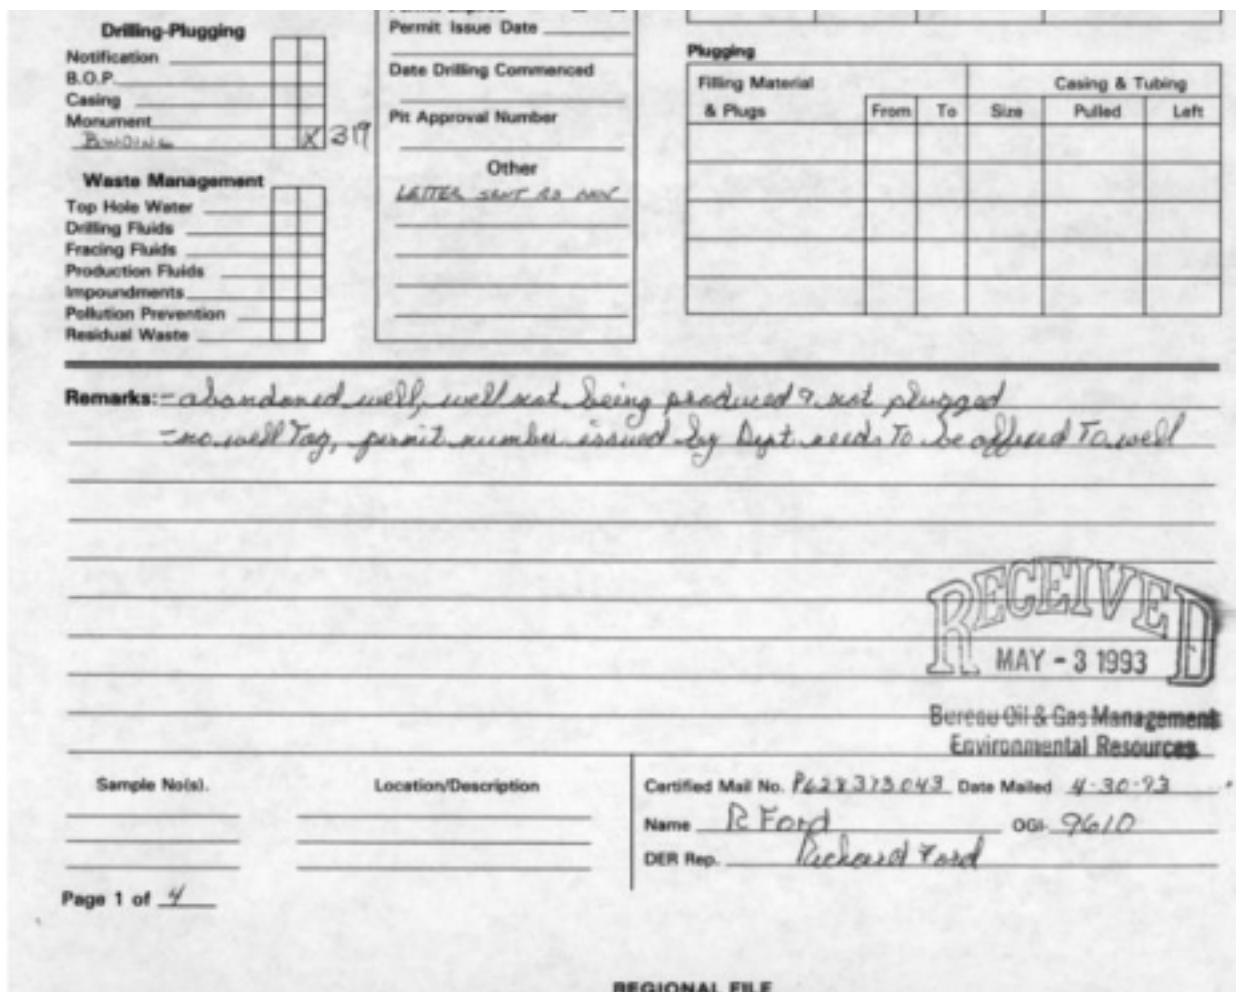 Permit Issue Date
Drilling-Plugging
Notification
B.O.P.
Casing
Monument
Bonding X 319
Waste Management
Top Hole Water
Drilling Fluids
Fracing Fluids
Production Fluids
Impoundments
Pollution Prevention
Residual Waste
Date Drilling Commenced
Pit Approval Number
Other
LETTER SENT AS NOV
Plugging
Filling Material & Plugs
Casing & Tubing
From To Size Pulled Left
Remarks: - abandoned well, well not being produced & not plugged
- no well Tag, permit number issued by Dept needs To be affixed To well
RECEIVED
MAY - 3 1993
Bureau Oil & Gas Management
Environmental Resources
Sample No(s). Location/Description
Certified Mail No. P628373043 Date Mailed 4-30-93
Name R Ford OGI- 9610
DER Rep. Richard Ford
Page 1 of 4
REGIONAL FILE